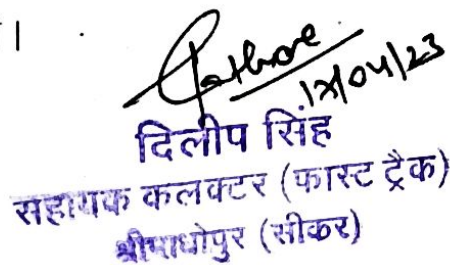 ।
17/04/23
दिलीप सिंह
सहायक कलक्टर (फास्ट ट्रैक)
श्रीमाधोपुर (सीकर)